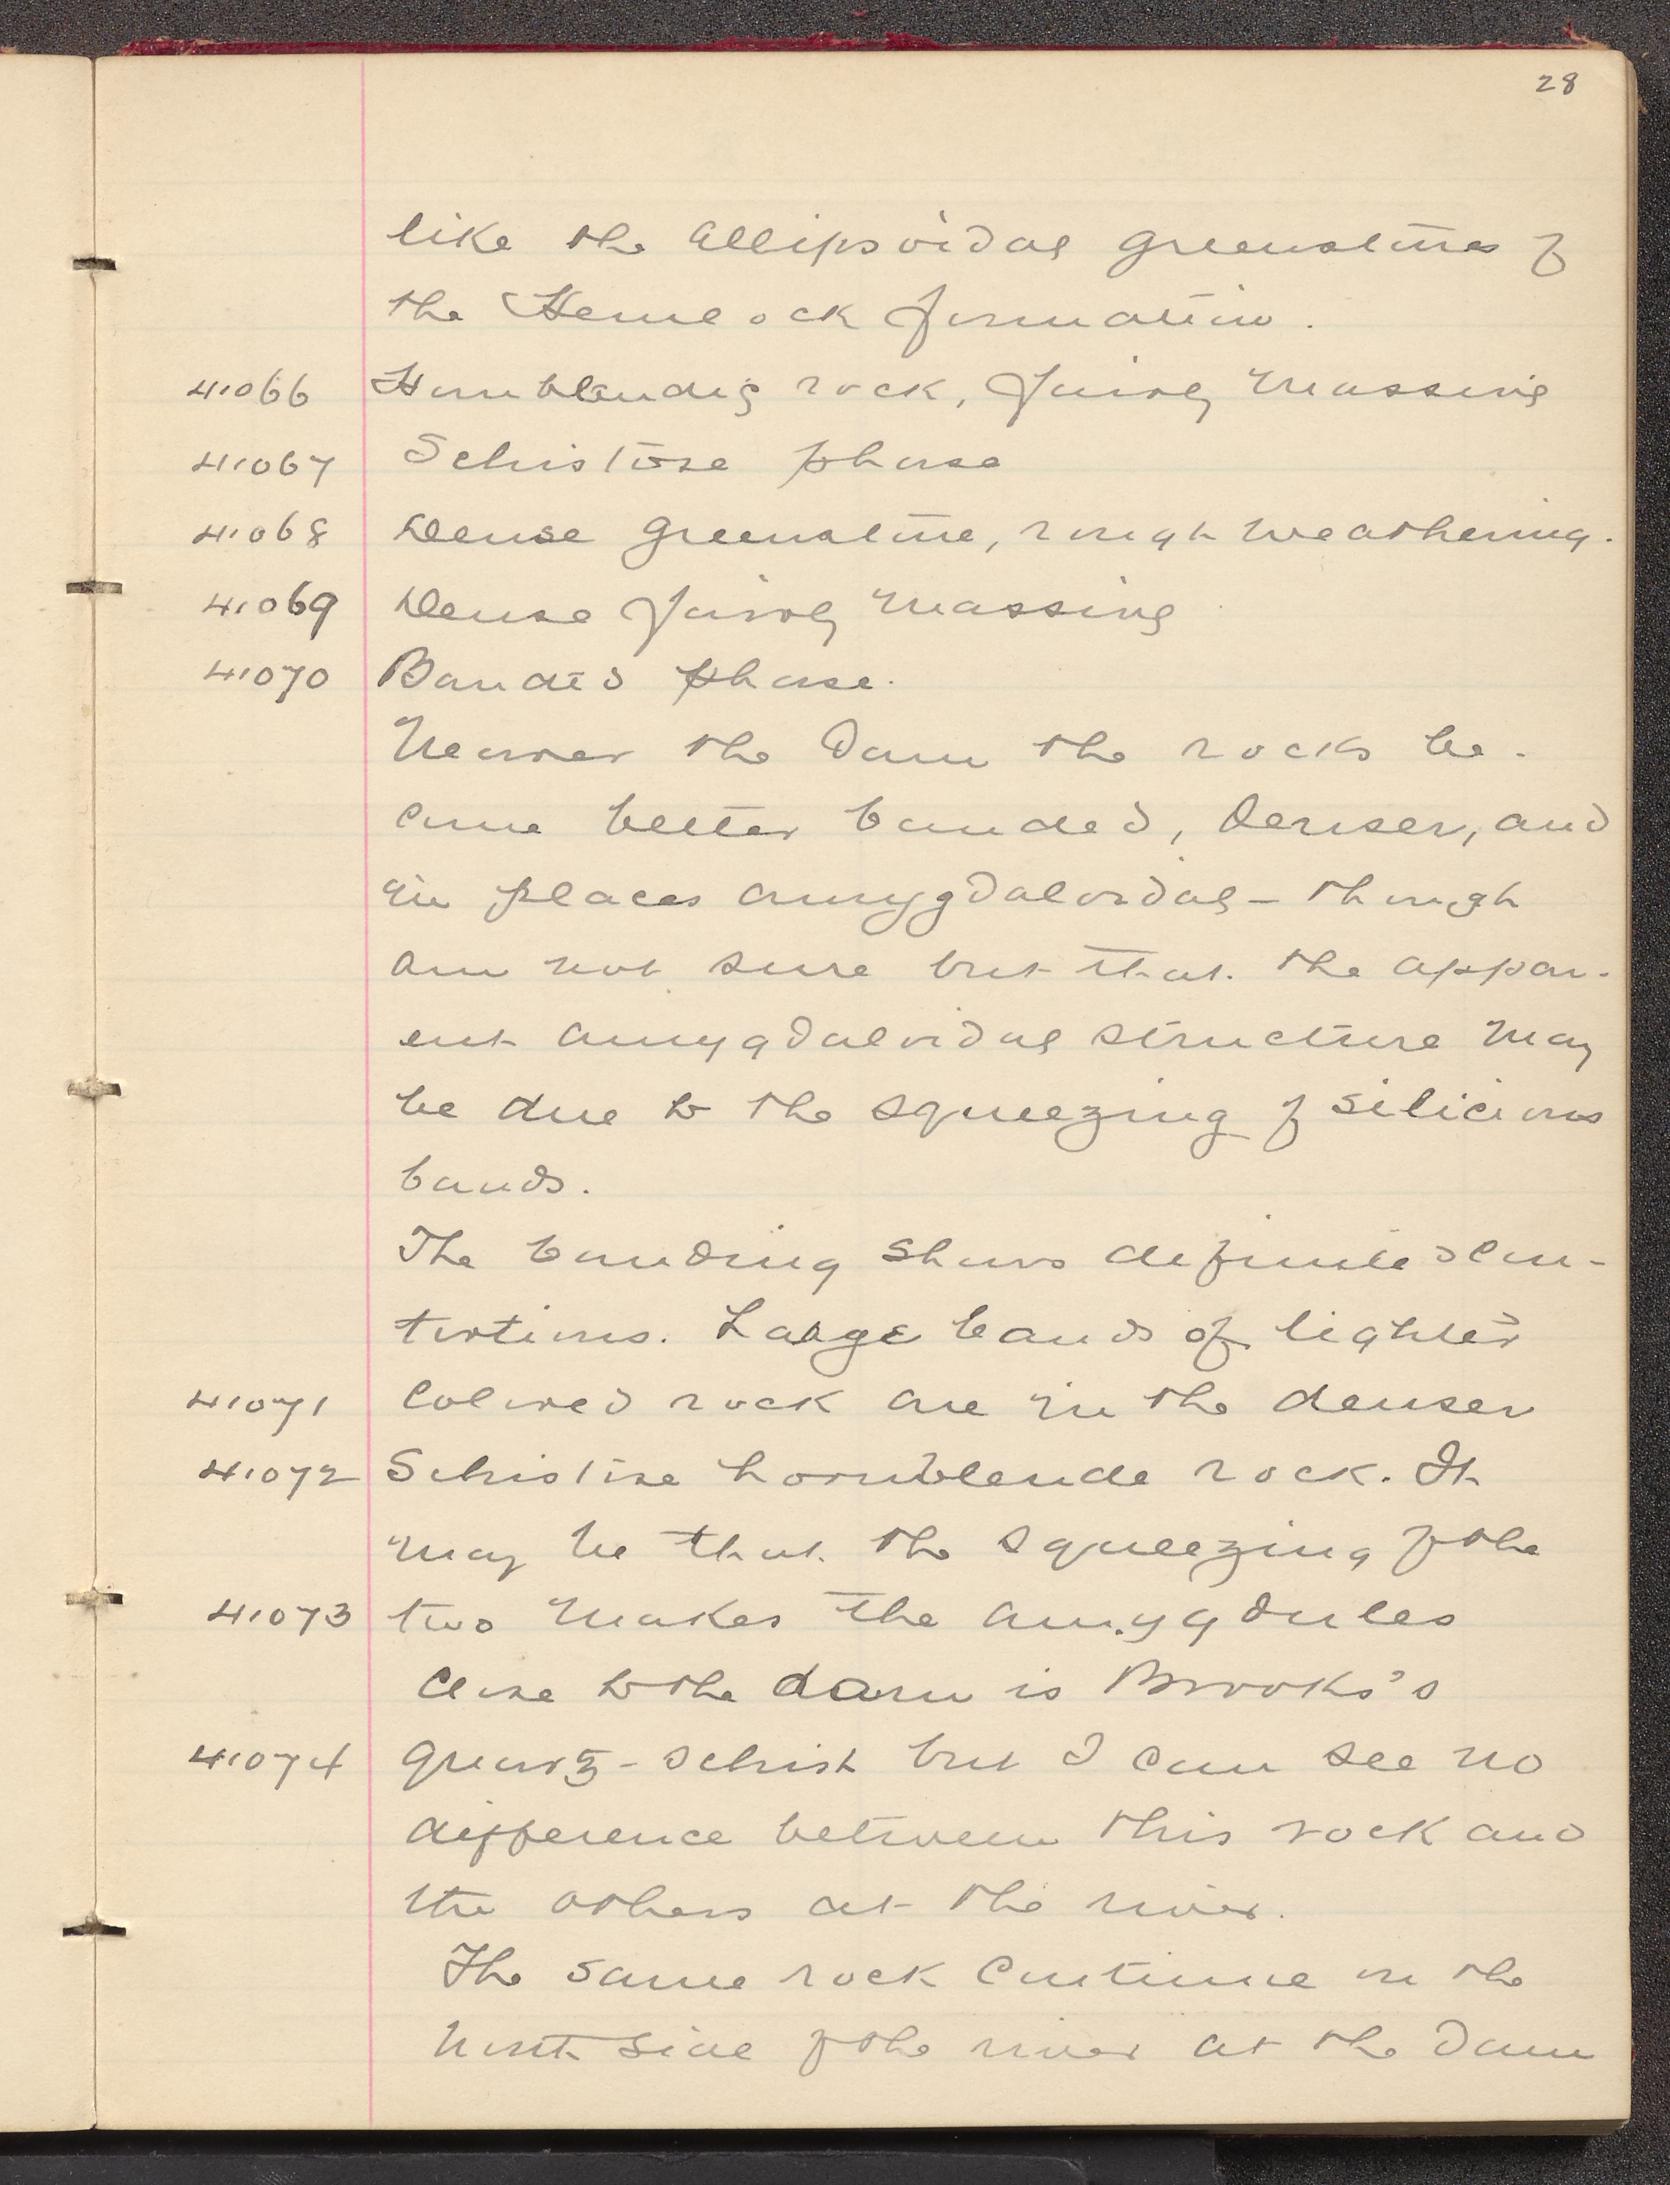 28
like the ellipsoidal greenstones of
the Hemlock formation.
41066 Hornblendic rock, fairly massive
41067 Schistose phase
41068 Dense greenstone, rough weathering.
41069 Dense fairly massive
41070 Banded phase.
Nearer the dam the rocks be-
come better banded, denser, and
in places amygdaloidal - though
am not sure but that the appar-
ent amygdaloidal structure may
be due to the squeezing of silicious
bands.
The banding shows definite con-
tortions. Large bands of lighter
41071 colored rock are in the denser
41072 Schistose hornblende rock. It
may be that the squeezing of the
41073 two makes the amygdules
Close to the dam is Brooks's
41074 quartz-schist but I can see no
difference between this rock and
the others at the river.
The same rock continue on the
north side of the river at the dam